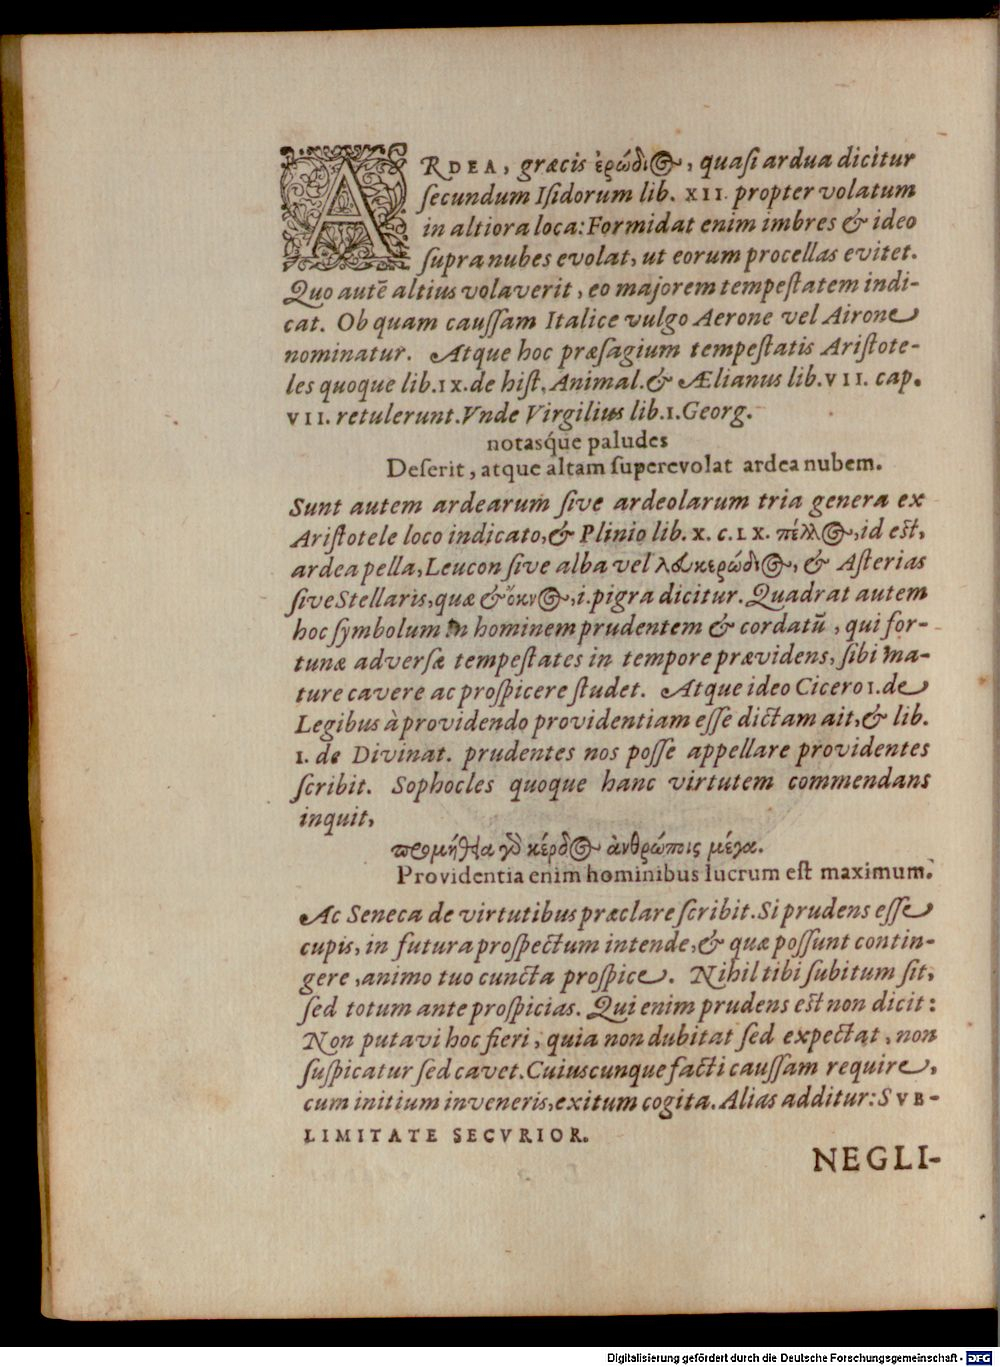 ARDEA, græcis ἐρώδιος, quaſi ardua dicitur
ſecundum Iſidorum lib. XII. propter volatum
in altiora loca: Formidat enim imbres & ideo
ſupra nubes evolat, ut eorum procellas evitet.
Quo autē altius volaverit, eo majorem tempeſtatem indi-
cat. Ob quam cauſſam Italice vulgo Aerone vel Airone
nominatur. Atque hoc præſagium tempeſtatis Ariſtote-
les quoque lib. IX. de hiſt. Animal. & Ælianus lib. VII. cap.
VII. retulerunt. Vnde Virgilius lib. I. Georg.
notasq́ue paludes
Deſerit, atque altam ſuperevolat ardea nubem.
Sunt autem ardearum ſive ardeolarum tria genera ex
Ariſtotele loco indicato, & Plinio lib. X. c. LX. πέλλος, id eſt,
ardea pella, Leucon ſive alba vel λευκερώδιος, & Aſterias
ſive Stellaris, quæ & ὄκνος, i. pigra dicitur. Quadrat autem
hoc ſymbolum in hominem prudentem & cordatū, qui for-
tunæ adverſæ tempeſtates in tempore prævidens, ſibi ma-
ture cavere ac proſpicere ſtudet. Atque ideo Cicero 1. de
Legibus à providendo providentiam eſſe dictam ait, & lib.
1. de Divinat. prudentes nos poſſe appellare providentes
ſcribit. Sophocles quoque hanc virtutem commendans
inquit,
προμήθεια γὰρ κέρδος ἀνθρώποις μέγα.
Providentia enim hominibus lucrum eſt maximum.
Ac Seneca de virtutibus præclare ſcribit. Si prudens eſſe
cupis, in futura proſpectum intende, & quæ poſſunt contin-
gere, animo tuo cuncta proſpice. Nihil tibi ſubitum ſit,
ſed totum ante proſpicias. Qui enim prudens eſt non dicit:
Non putavi hoc fieri, quia non dubitat ſed expectat, non
ſuſpicatur ſed cavet. Cuiuscunque facti cauſſam require,
cum initium inveneris, exitum cogita. Alias additur: SVB-
LIMITATE SECVRIOR.
NEGLI-
Digitalisierung gefördert durch die Deutsche Forschungsgemeinschaft - DFG